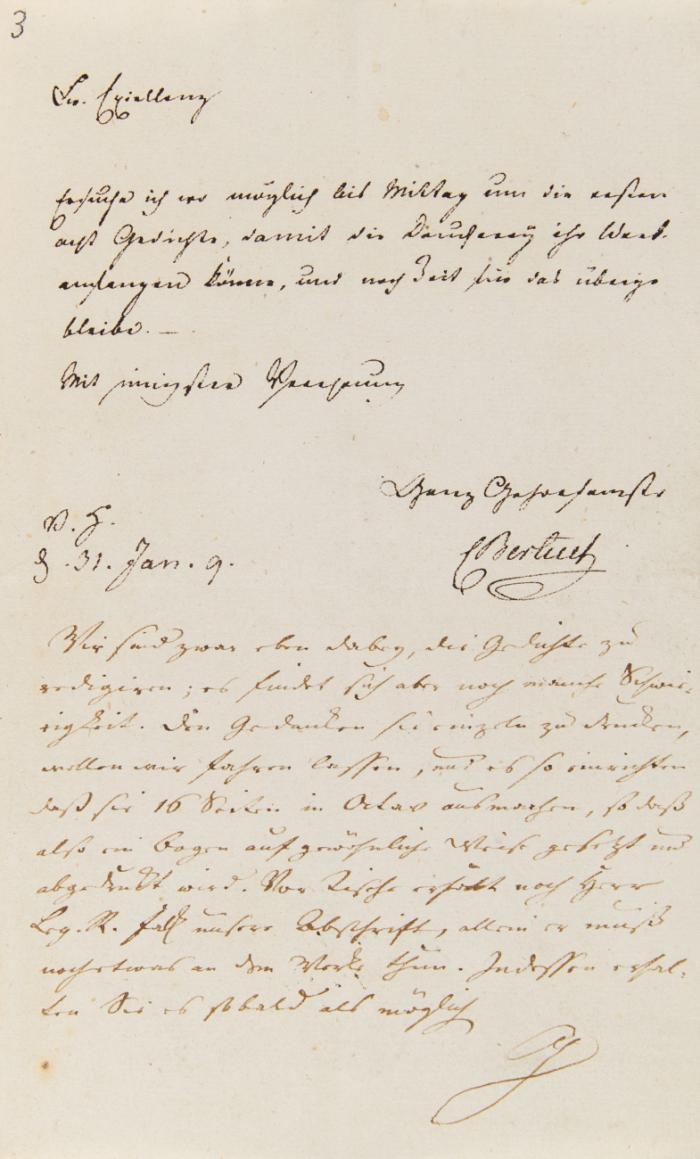 3
Ew. Exzellenz
Ersuche ich wo möglich bis Mittag um die ersten
acht Gedichte, damit die Druckerey ihr Werk
anfangen könne, und noch Zeit für das übrige
bleibe. —
Mit innigster Verehrung
Ganz Gehorsamster
CBertuch
v. H.
d. 31. Jan. 9.
Wir sind zwar eben dabey, die Gedichte zu
redigiren; es findet sich aber noch manche Schwie-
rigkeit. Den Gedanken sie einzeln zu drucken,
wollen wir fahren lassen, und es so einrichten
daß sie 16 Seiten in Octav ausmachen, so daß
also ein Bogen auf gewöhnliche Weise gesetzt und
abgedruckt wird. Vor Tische erhält noch Herr
Leg. R. Falk unsere Abschrift, allein er muß
noch etwas an dem Werke thun. Indessen erhal-
ten Sie es sobald als möglich
G